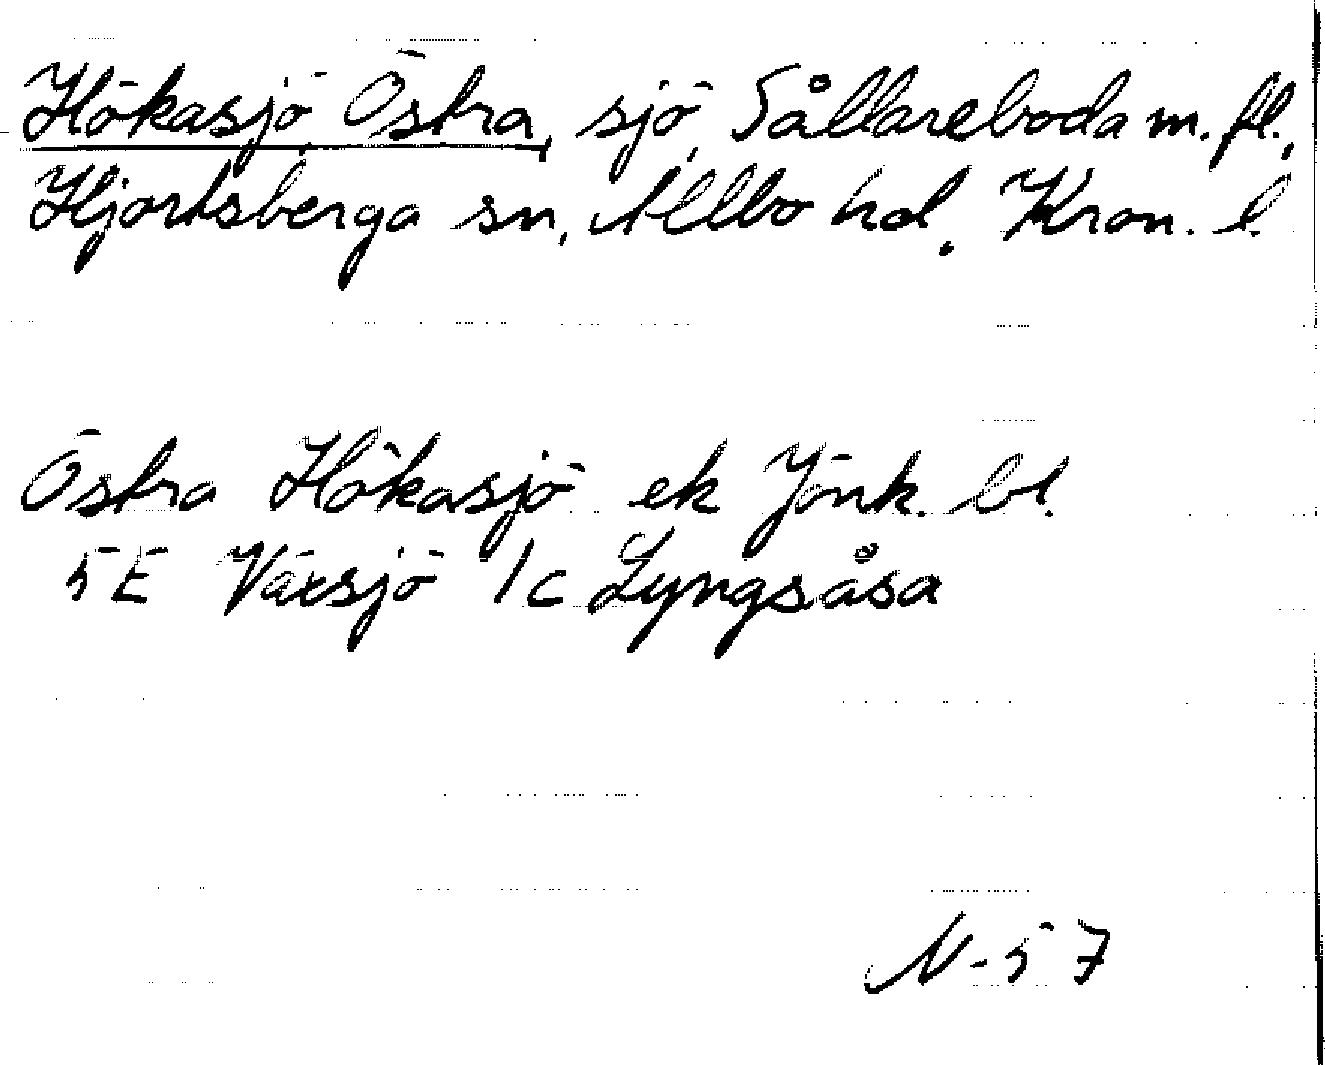 Hökasjö, Östra, sjö, Sållareboda m. fl.,
Hjortsberga sn, Allbo hd. Kron. l.
Östra Hökasjö ek Jönk. bl.
5E Växsjö 1c Lyngsåsa
N-57